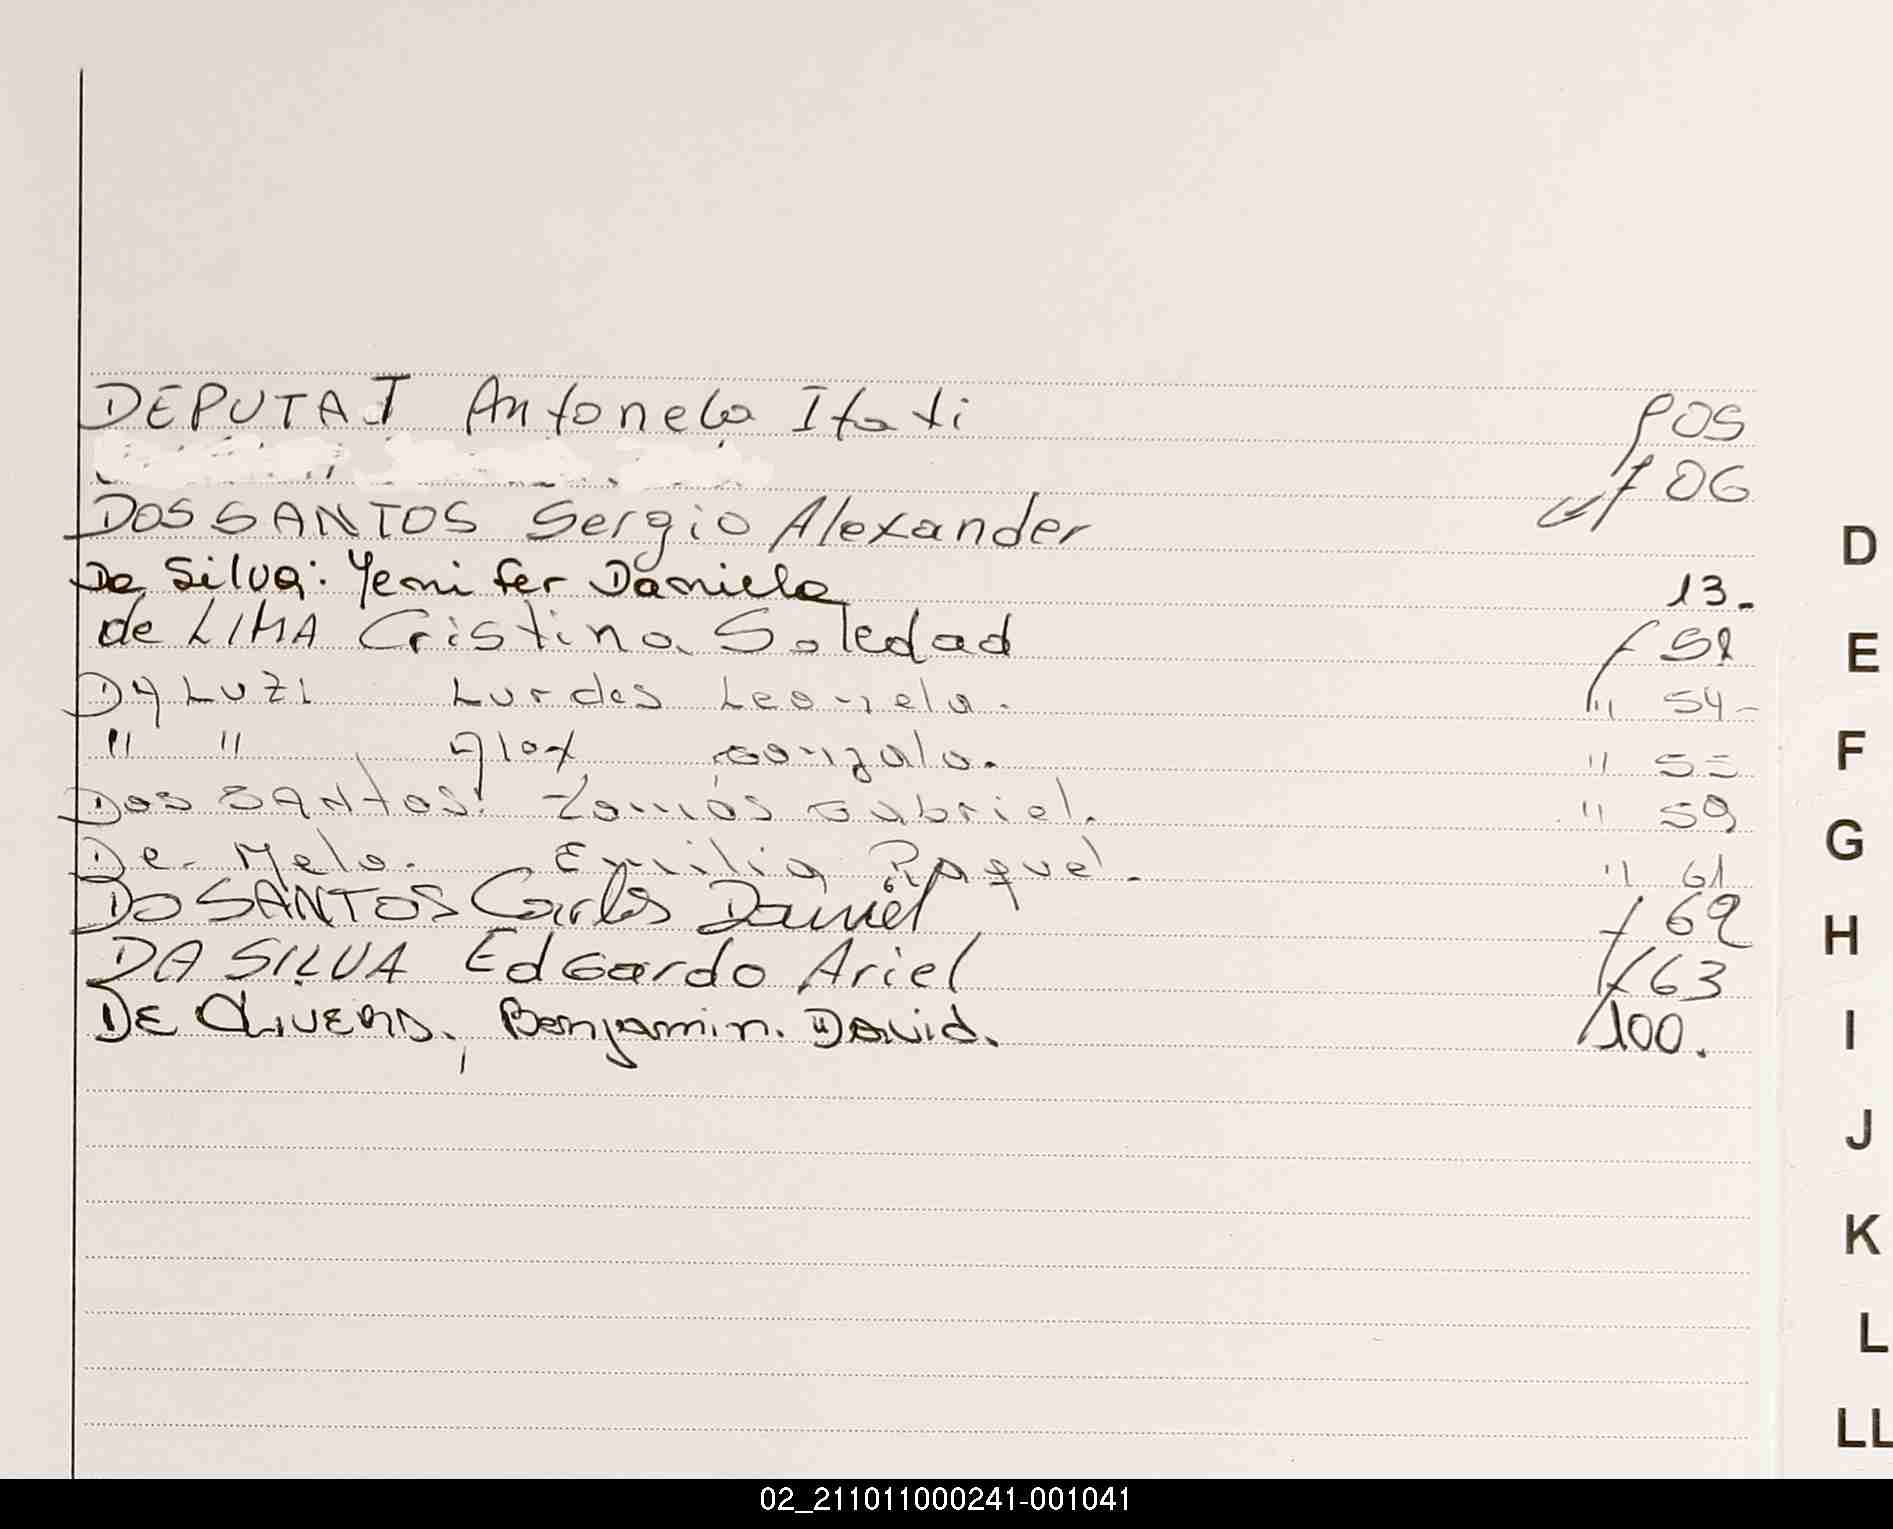 DEPUTAT Antonela Itati f 05
f 06
DOS SANTOS Sergio Alexander
Da Silva: Yenifer Daniela 13.
de LIMA Cristina Soledad f 52
DA LUZ Lurdes Leonela. " 54-
" " Alex Gonzalo. " 55
Dos SANtos: Tomás Gabriel. " 59
De Melo. Emilia Raquel. " 61
DO SANTOS Carlos Daniel f 62
DA SILVA Edgardo Ariel f 63
DE OLIVERA, Benjamin. David. 100.
D
E
F
G
H
I
J
K
L
LL
02_211011000241-001041